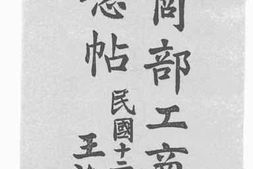 商部工商
念帖
民國十
王